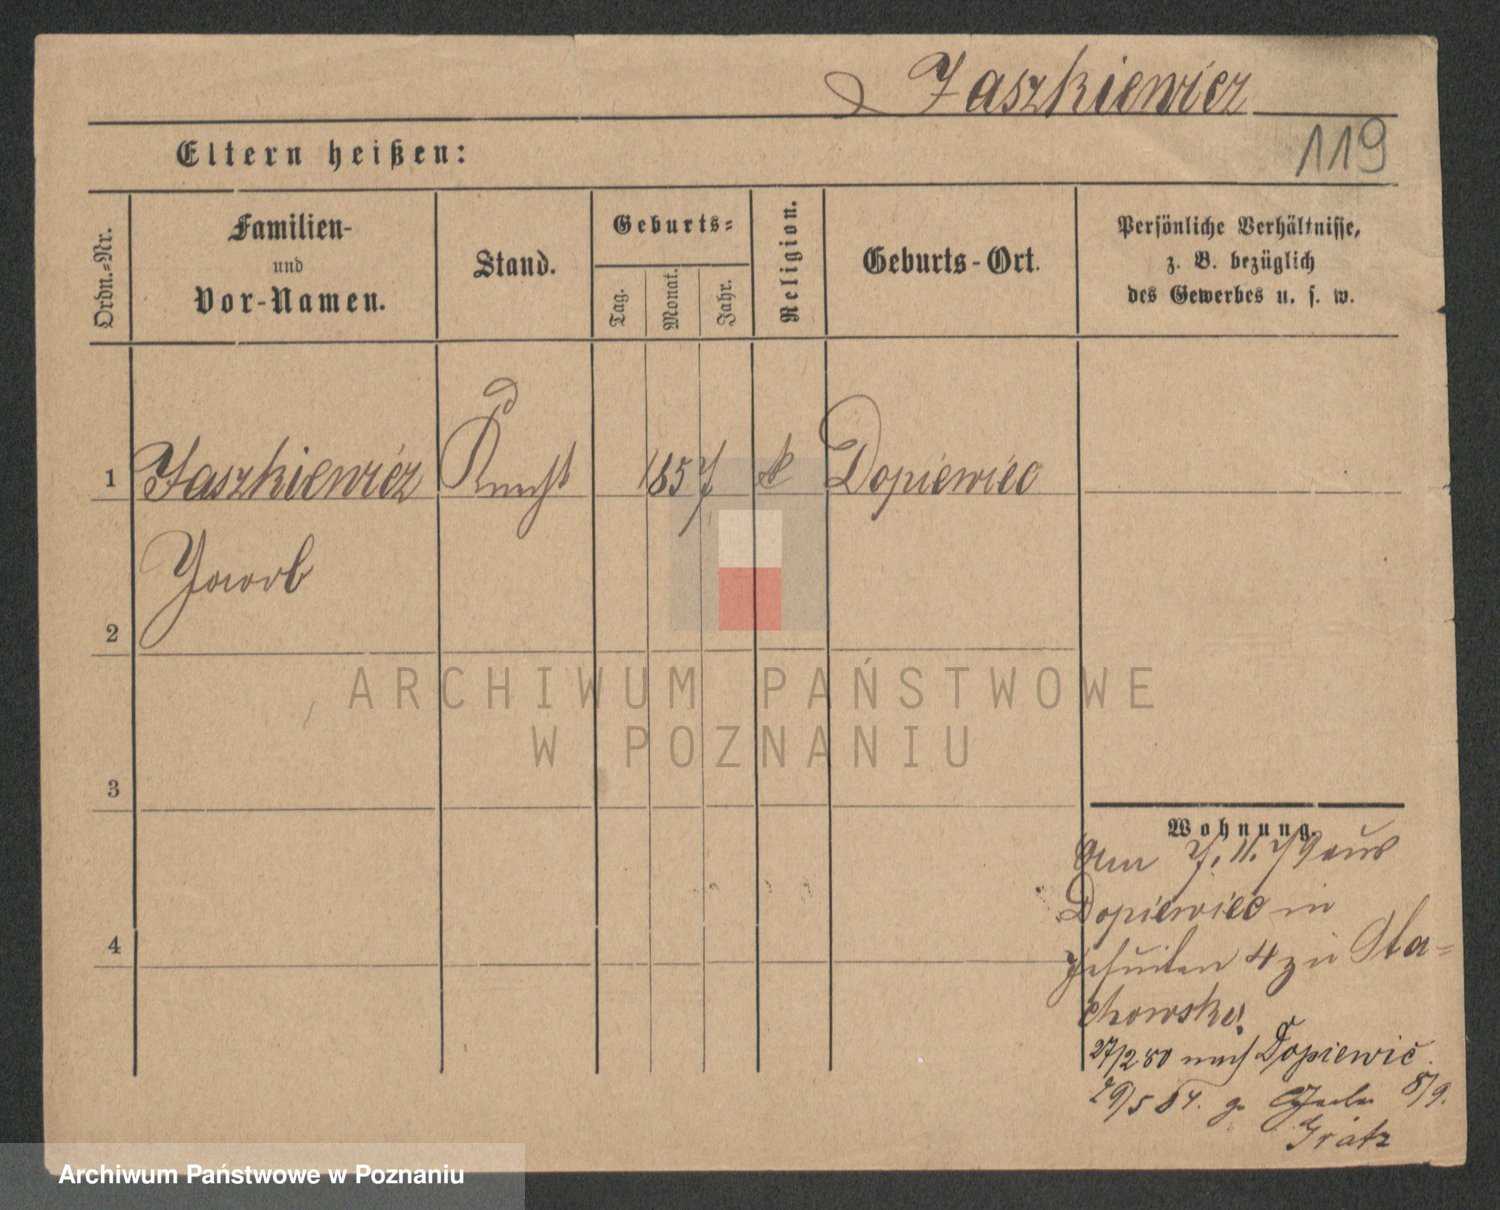 Jaszkiewicz
119
Eltern heißen:
Ordn.-Nr.
Familien-
und
Vor-Namen.
Stand.
Geburts-
Tag.
Monat.
Jahr.
Religion.
Geburts-Ort.
Persönliche Verhältnisse,
z. B. bezüglich
des Gewerbes u. s. w.
1 Jaszkiewicz Knecht 1857 k Dopiewiec
Jacob
2
3
4
Wohnung.
Am 7. 11. 79 aus
Dopiewiec in
Jesuiten 4 zu Sta-
chowski
27/2 80 nach Dopiewic.
29/5 84. 8/9.
Grätz
ARCHIWUM PAŃSTWOWE
W POZNANIU
Archiwum Państwowe w Poznaniu